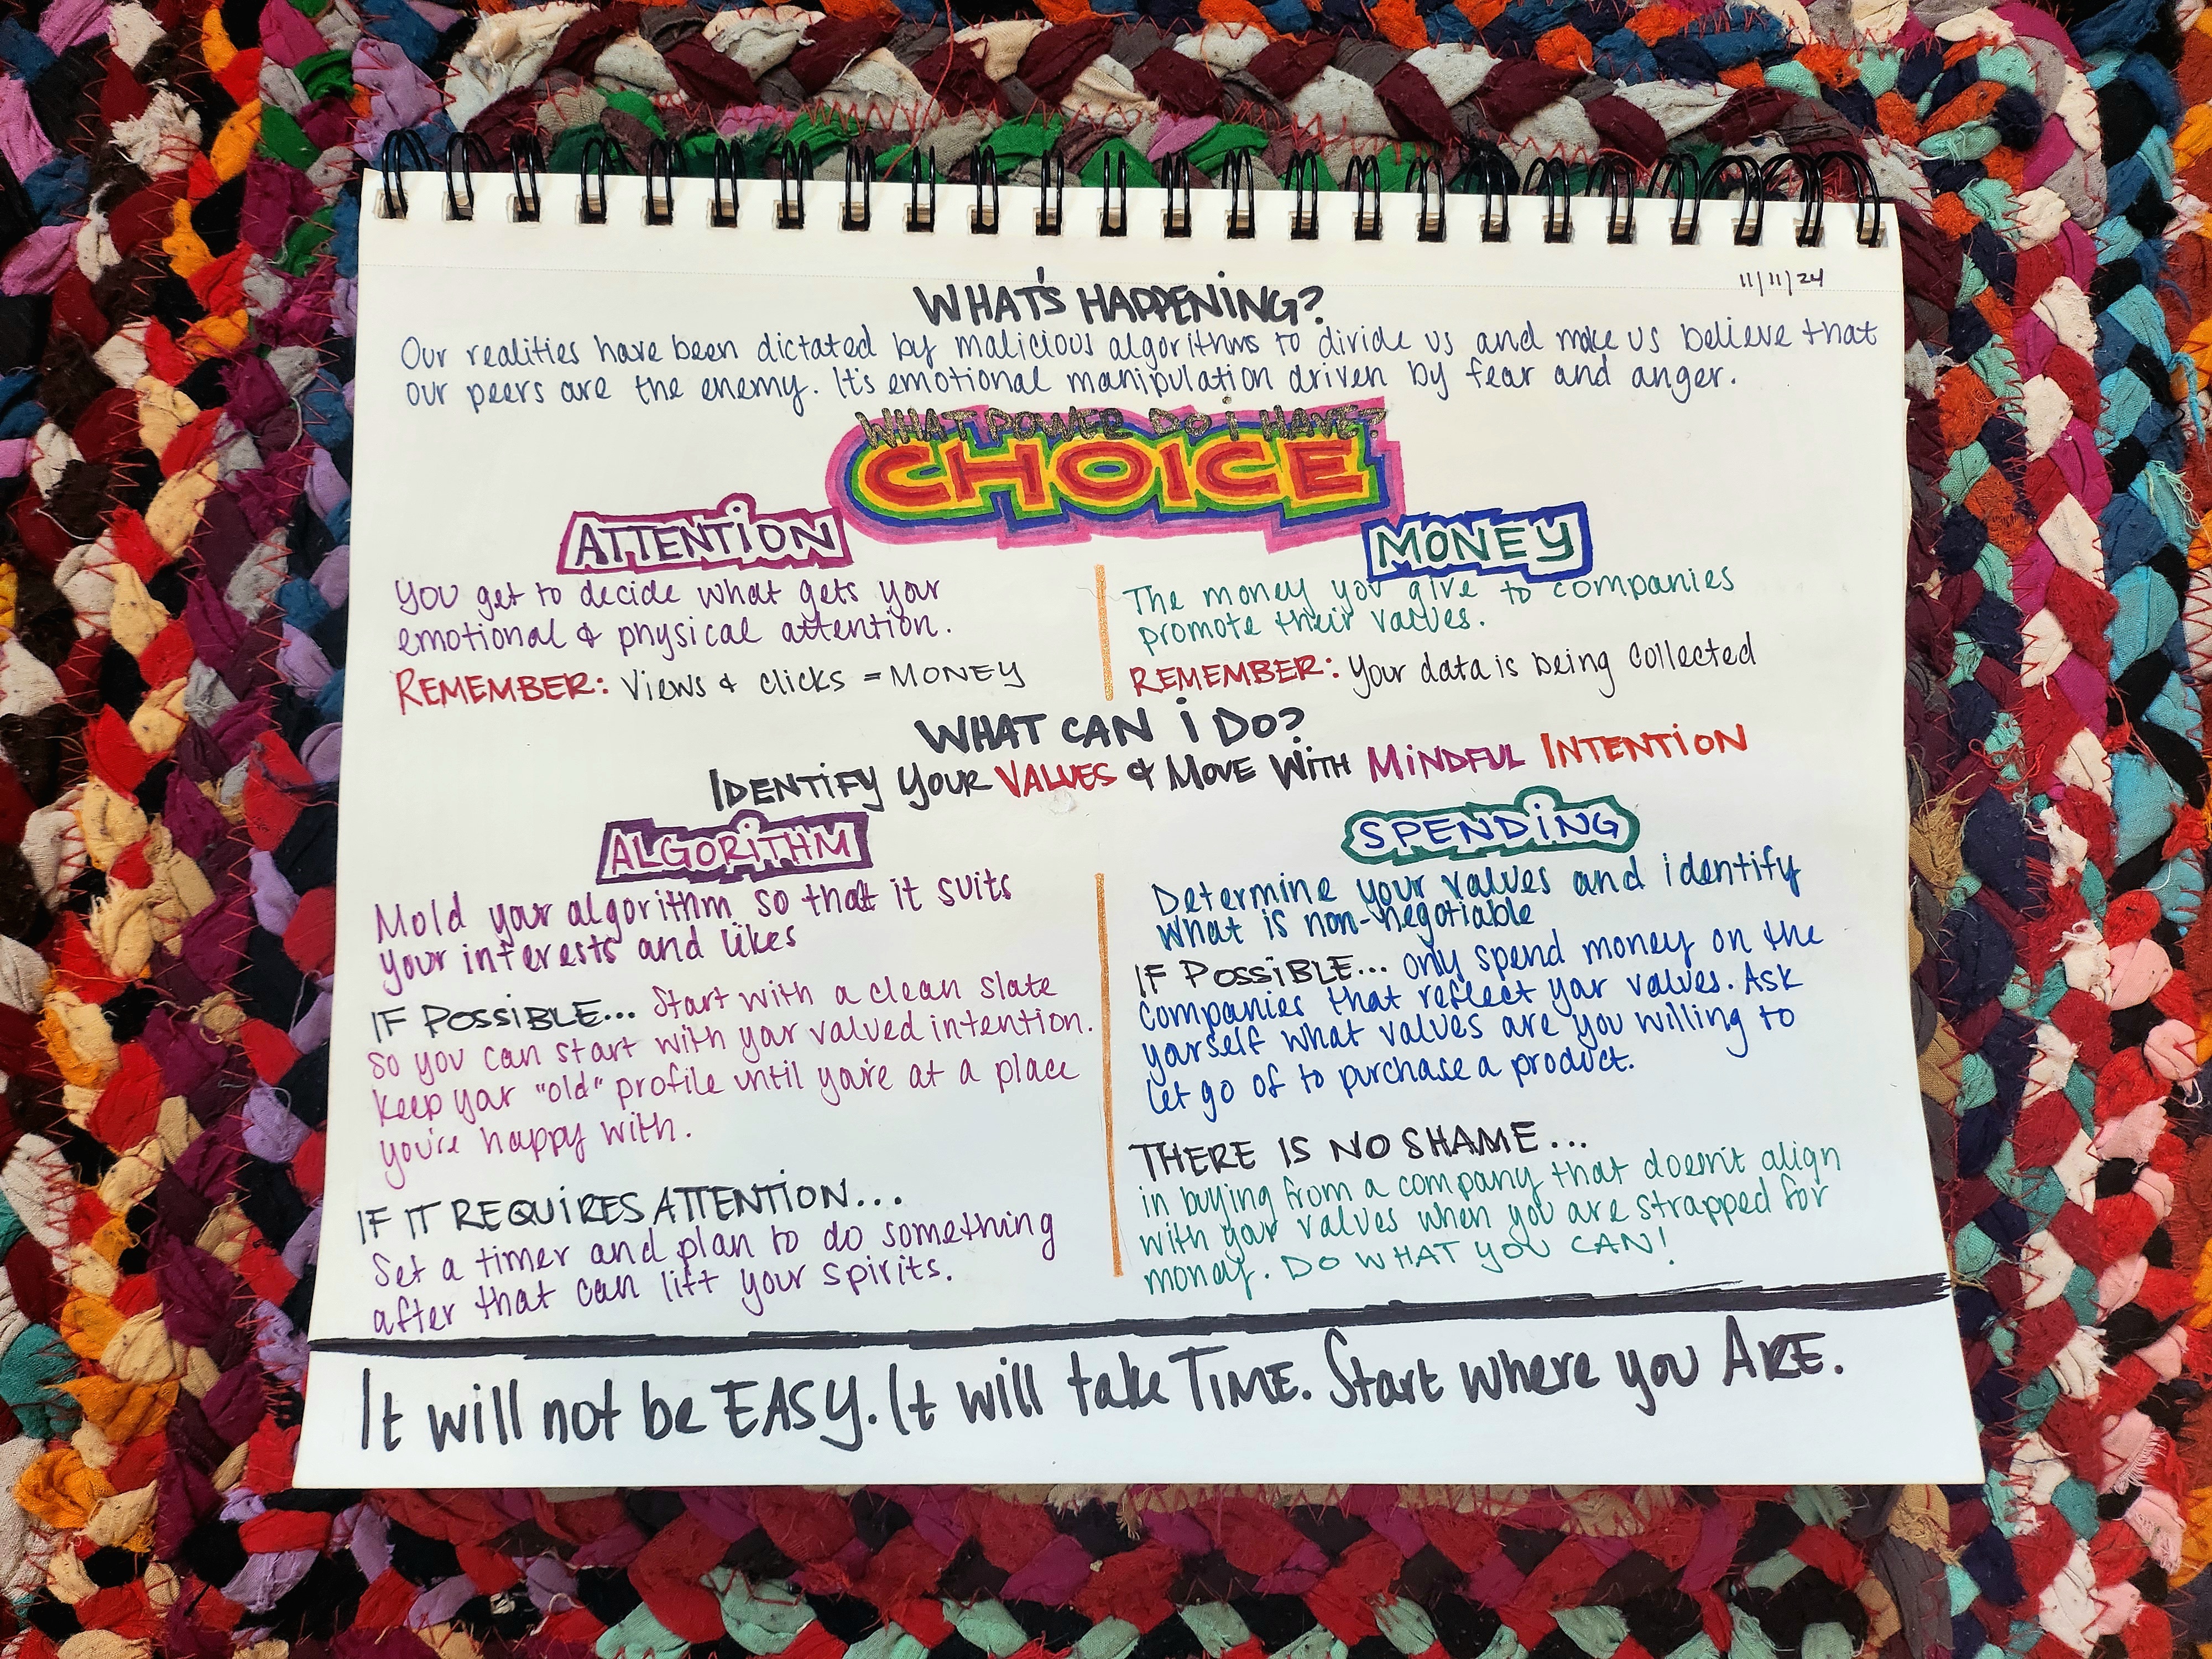 11/11/24
WHAT'S HAPPENING?
Our realities have been dictated by malicious algorithms to divide us and make us believe that
our peers are the enemy. It's emotional manipulation driven by fear and anger.
WHAT POWER DO i HAVE?
CHOICE
ATTENTiON
You get to decide what gets your
emotional & physical attention.
REMEMBER: Views & clicks = MONEY
MONEY
The money you give to companies
promote their values.
REMEMBER: Your data is being collected
WHAT CAN i DO?
IDENTIFY YOUR VALUES & MOVE WiTH MiNDFUL INTENTiON
ALGORiTHM
Mold your algorithm so that it suits
your interests and likes
IF POSSiBLE... Start with a clean slate
so you can start with your valued intention.
Keep your "old" profile until you're at a place
you're happy with.
IF IT REQUiRES ATTENTiON...
Set a timer and plan to do something
after that can lift your spirits.
SPENDiNG
Determine your values and identify
what is non-negotiable
IF POSSiBLE... only spend money on the
companies that reflect your values. Ask
yourself what values are you willing to
let go of to purchase a product.
THERE IS NO SHAME...
in buying from a company that doesn't align
with your values when you are strapped for
money. DO WHAT YOU CAN!
It will not be EASY. It will take TiME. Start where you ARE.